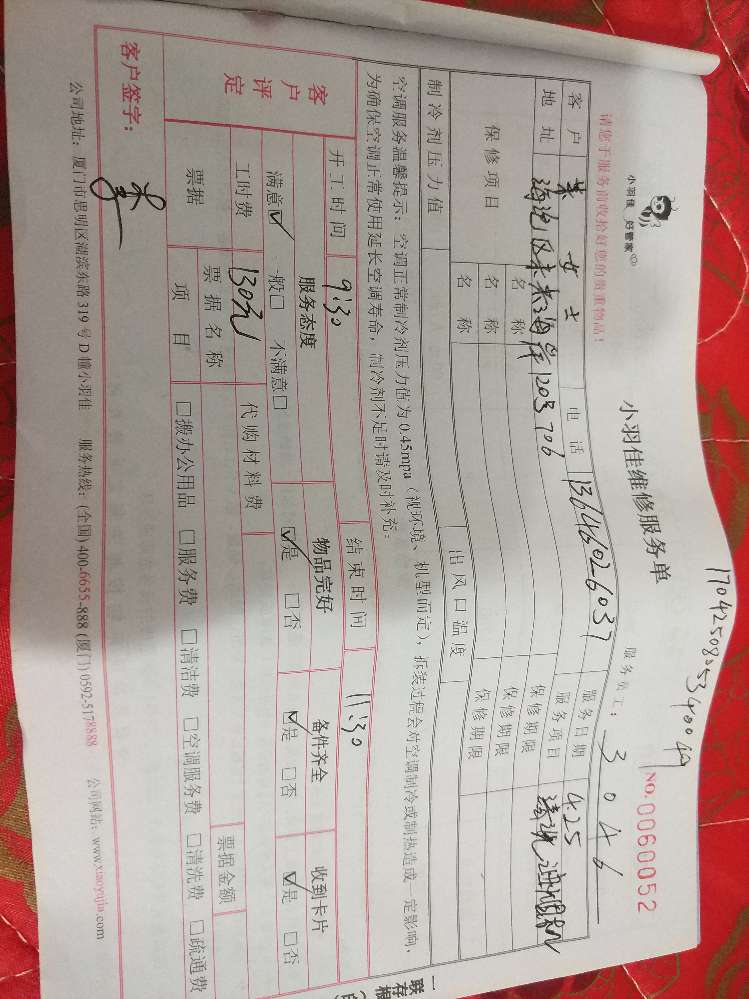 小羽佳 好管家
小羽佳维修服务单
NO.0060052
请您于服务前收拾好您的贵重物品!
服务员工: 3046
客户 女士 电话 13646026037 服务日期 4.25
地址 海沧区未来海岸1203 706 服务项目 清洗油烟机
保修项目 名称 保修期限
名称 保修期限
名称 保修期限
制冷剂压力值 出风口温度
空调服务温馨提示:空调正常制冷剂压力值为0.45mpa(视环境、机型而定),拆装过程会对空调制冷或制热造成一定影响,
为确保空调正常使用延长空调寿命,制冷剂不足时请及时补充:
开工时间 9:30 结束时间 11:30
客户评定 服务态度 物品完好 备件齐全 收到卡片
满意☑ 一般□ 不满意□ ☑是 □否 ☑是 □否 ☑是 □否
工时费 130元 代购材料费
票据 票据名称 票据金额
项目 □搬办公用品 □服务费 □清洁费 □空调服务费 □清洗费 □疏通费
客户签字:
公司地址:厦门市思明区湖滨东路319号D幢小羽佳 服务热线:(全国)400-6655-888(厦门)0592-5178888 公司网站:www.xiaoyujia.com
一存根
联